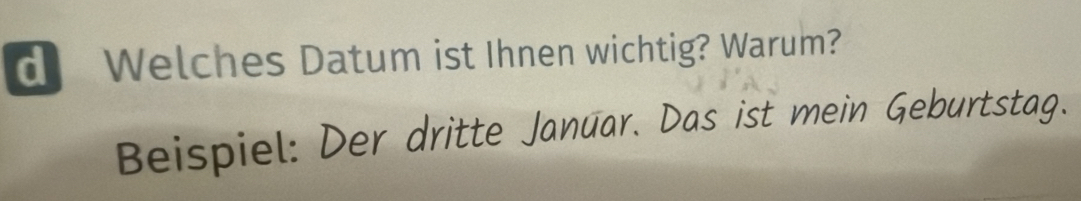 d Welches Datum ist Ihnen wichtig? Warum?
Beispiel: Der dritte Januar. Das ist mein Geburtstag.